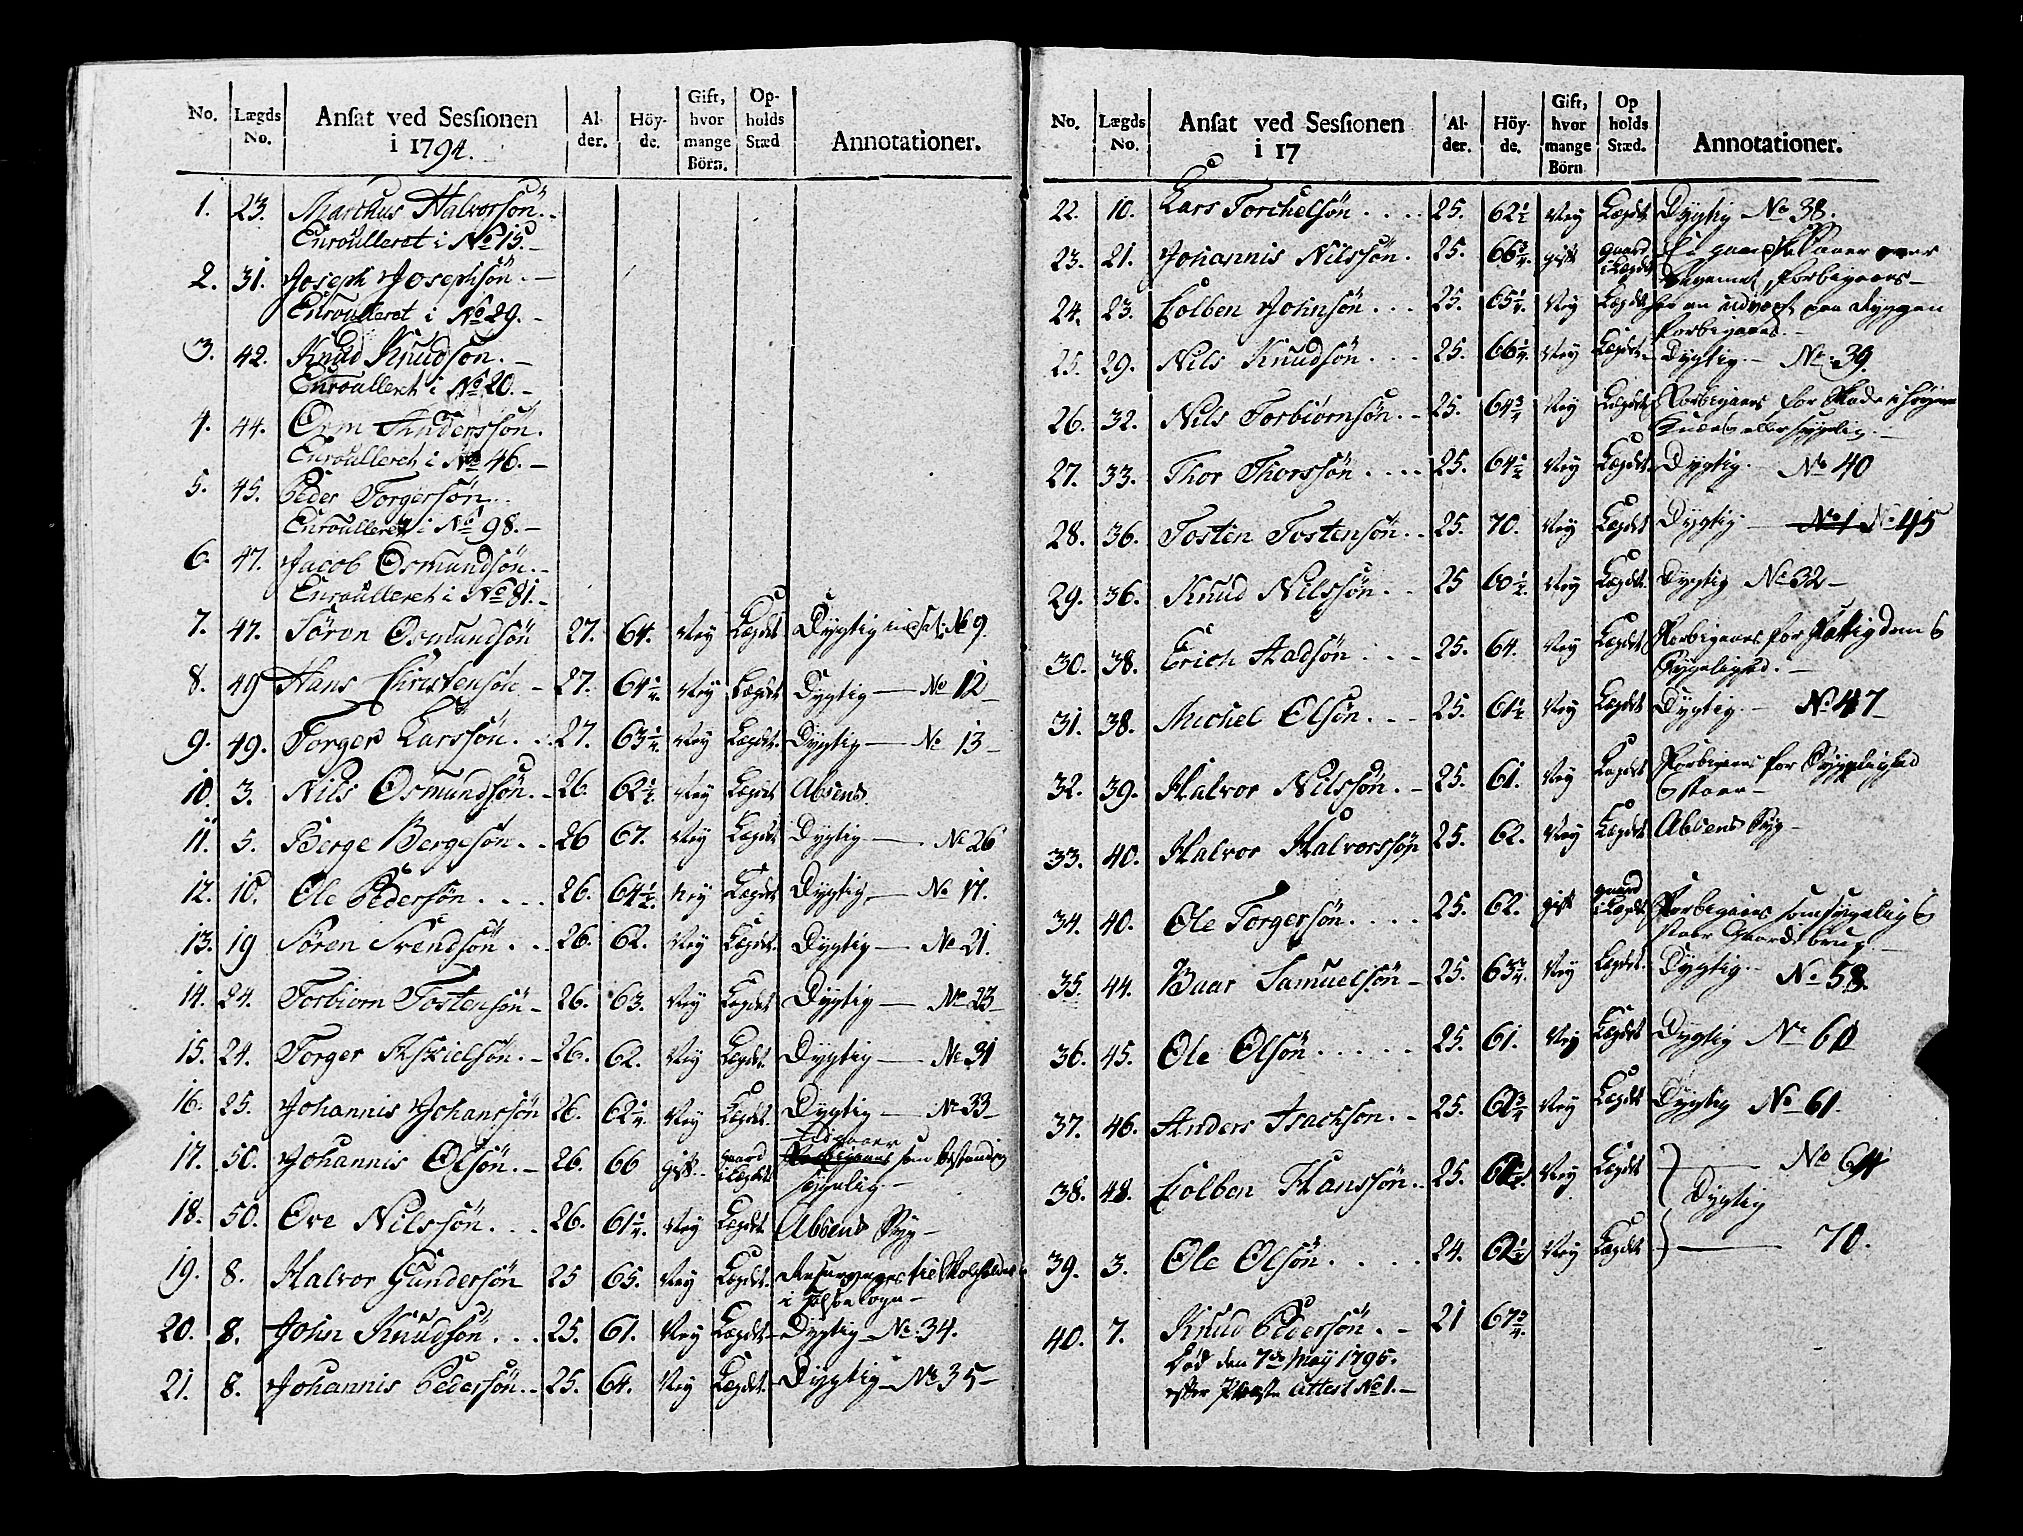 No. Lægds No. Ansat ved Sessionen i 1794. Alder. Höyde. Gift, hvor mange Börn. Opholds Stæd Annotationer.
1. 23. Marchus Halvorsön..
Enroulleret i No 15.-
2. 31. Joseph Josephsön.-
Enroulleret i No 29.-
3. 42. Knud Knudson.-
Enroulleret i No 20.-
4. 44. Orm Anderssön.
Enroulleret i No 46.-
5. 45. Peder Torgersön...
Enroulleret i No 98.-
6. 47. Jacob Osmundsön.-
Enroulleret i No 81.-
7. 47. Sören Osmundsön 27. 64. Ney Lægdet Dygtig No 9.
8. 49 Hans Christensön - 27. 64 1/4. Ney Lægdet Dygtig — No 12
9. 49. Torger Larssön. . 27. 63 1/4. Ney Lægdet. Dygtig — No 13-
10. 3. Nils Osmundsön.- 26. 62 1/2. Ney Lægdet Absens.
11. 5. Berge Bergesön.. 26 67. Ney Lægdet Dygtig — No 26
12. 10. Ole Pedersön.... 26. 64 1/2. Ney Lægdet Dygtig, — No 17.
13. 19 Sören Svendsön.. 26. 62. Ney Lægdet. Dygtig — No 21.
14. 24. Torbiorn Tostensön- 26. 63. Ney Lægdet Dygtig — No 23
15. 24. Torger Askielsön.- 26. 62. Ney Lægdet Dygtig — No 31
16. 25. Johannis Johanssön 26. 62 1/4. Ney Lægdet. Dygtig — No 33-
17. 50. Johannis Olsön.- 26. 66 gift.- gaard i Lægdet Udgaaer Forbigaaes som bestandig
sygelig.-
18. 50. Ove Nilssön... 26. 61 1/4. Ney Lægdet. Absens Syg-
19. 8. Halvor Gundersön 25 65. Ney Lægdet. til Skoleholder
i
20. 8. John Knudsön... 25. 61. Ney Lægdet- Dygtig - No 34.
21. 8. Johannis Pedersön.- 25. 64. Ney Lægdet. Dygtig - No 35-
No. Lægds No. Ansat ved Sessionen i 17 Alder. Höyde. Gift, hvor mange Börn Opholds Stæd. Annotationer.
22. 10. Lars Torchelsön.... 25. 62 1/2 Ney Lægdet Dygtig No 38.
23. 21. Johannis Nilssön. 25. 66 3/4. gift gaard i Lægdet over
Forbigaaes-
24. 23. Colben Johnsön... 25. 65 1/4. Ney Lægdet har en udvæxt paa Ryggen
Forbigaaes.-
25. 29. Nils Knudsön... 25. 66 1/4. Ney Lægdet- Dygtig.- No 39.
26. 32. Nils Torbiörnsön.- 25. 64 3/4 Ney Lægdet Forbigaaes for Skade i höyre
27. 33. Thor Thorssön.... 25. 64 1/2 Ney Lægdet Dygtig. No 40
28. 36. Tosten Tostensön.. 25. 70. Ney Lægdet Dygtig — No 1 No 45
29. 36. Knud Nilssön.. 25 60 1/2 Ney Lægdet. Dygtig No 32-
30. 38. Erich Aadsön... 25. 64. Ney Lægdet Forbigaaes for Fattigdom &
Sygelighed.-
31. 38. Michel Olsön... 25. 61 1/2 Ney Lægdet Dygtig.- No 47-
32. 39. Halvor Nilssön.- 25. 61. Ney Lægdet Forbigaaes for Sygelighed
33. 40. Halvor Halvorssön 25. 62. Ney Lægdet Absens Syg-
34. 40. Ole Torgersön.... 25. 62. gift gaard i Lægdet Forbigaaes som sygelig &
staar Gaards brug.
35. 44. Baar Samuelsön- 25. 63 3/4 Ney Lægdet. Dygtig.- No 58.
36. 45. Ole Olsön..... 25. 61. Ney Lægdet Dygtig No 60
37. 46. Anders Isachson.- 25. 62 3/4 Ney Lægdet Dygtig No 61.
38. 48. Colben Hanssön.. 25. Ney Lægdet — No 64
Dygtig
39. 3. Ole Olsön..... 24. 62 1/2 Ney Lægdet — 70.
40. 7. Knud Pedersön.- 21 67 3/4.
Död den 7de May 1795.
efter Præste Attest No 1.-